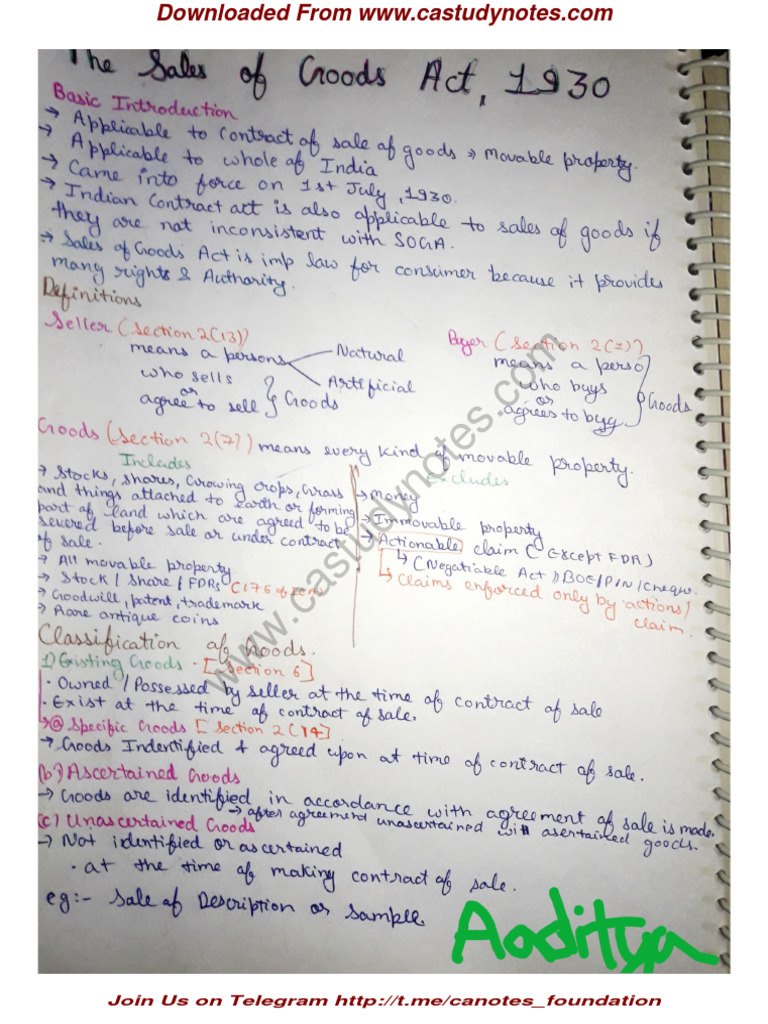 Downloaded From www.castudynotes.com
The Sales of Goods Act, 1930
Basic Introduction
→ Applicable to contract of sale of goods → Movable property.
→ Applicable to whole of India
→ Came into force on 1st July, 1930.
→ Indian Contract act is also applicable to sales of goods if
they are not inconsistent with SOGA.
→ Sales of Goods Act is imp law for consumer because it provides
many rights & Authority.
Definitions
Seller (Section 2(13))
means a persons
Natural
Artificial
who sells
or
agree to sell
Goods
Buyer (Section 2(1))
means a perso
who buys
or
agrees to byg
Goods
Goods (Section 2(7)) means every kind of movable property.
Includes
→ Stocks, shares, Growing crops, Grass
and things attached to earth or forming
part of land which are agreed to be
severed before sale or under contract
of sale.
→ All movable property
→ Stock / Share / FDRs
→ Goodwill, patent, trademark
→ Rare antique coins
excludes
→ money
→ Immovable property
→ Actionable claim (Except FDR)
↳ (Negatiable Act) BOE/P/N/Cheque.
↳ Claims enforced only by actions/
claim.
Classification of Goods.
1) Existing Goods - [Section 6]
· Owned / Possessed by seller at the time of contract of sale
· Exist at the time of contract of sale.
→ (a) Specific Goods [Section 2(14]
→ Goods Indentified + agreed upon at time of contract of sale.
(b) Ascertained Goods
→ Goods are identified in accordance with agreement of sale is made.
→ after agreement unascertained with asertained goods.
(c) Unascertained Goods
→ Not identified or ascertained
· at the time of making contract of sale.
eg:- Sale of Description or Sample
Aaditya
www.castudynotes.com
Join Us on Telegram http://t.me/canotes_foundation